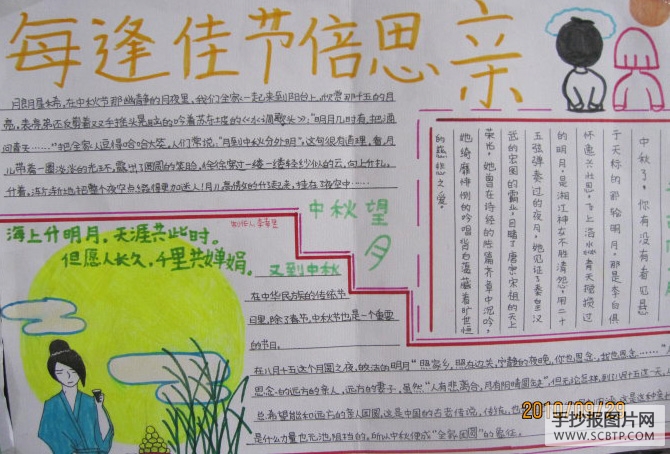 每逢佳节倍思亲
月朗星稀,在中秋节那幽静的月夜里,我们全家一起来到阳台上,欣赏那十五的月
亮,表弟还反剪着双手摇头晃脑的吟着苏东坡的《水调歌头》,"明月几时有,把酒
问青天……"把全家人逗得哈哈大笑,人们常说:"月到中秋分外明",这句很有道理,看,月
儿带着一圈淡淡的光环,露出了圆圆的笑脸,徐徐穿过一缕一缕轻纱似的云,向上升
升着
中秋了,你有没有看见悬
于天标的那轮明月,那是李白俱
怀逸兴壮思飞上
青天揽揽过
的明月,是湘江神女不胜清怨,用二十
五弦弹奏过的夜月,她见证了秦皇汉
武的宏图的霸业,目睹了唐宗宋祖的天上
荣光,她曾在诗经的陈篇齐章中沉吟,
她绮靡悱恻的吟唱背后蕴藏着旷世恒
的慈悲之爱。
中秋望月
制作人
海上升明月,天涯共此时。
但愿人长久,千里共婵娟。
又到中秋
在中华民族的传统节
日里,除了春节,中秋节也是一个重要
的节日。
在八月十五这个月圆之夜
明月"照家乡,照在边关,宁静的夜晚,你也思念,我也思念……"
思念的远方的亲人,远方的妻子,虽然"人有悲离合,月有阴晴圆缺"
总希望能和远方的亲人团圆,这是中国的古老传说
是什么力量也无法阻挡的,所以中秋便成"全家团圆"的象征。
2010/09/29
手抄报图片网
WWW.SCBTP.COM